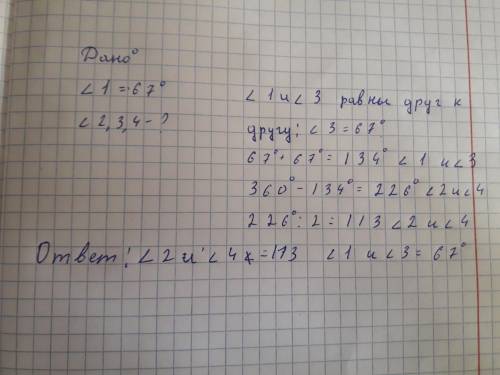 Дано:
∠1 = 67°
∠2,3,4 - ?
∠1 и ∠3 равны друг к
другу: ∠3 = 67°
67° + 67° = 134° ∠1 и ∠3
360° - 134° = 226° ∠2 и ∠4
226° : 2 = 113 ∠2 и ∠4
Ответ: ∠2 и ∠4 = 113 ∠1 и ∠3 = 67°